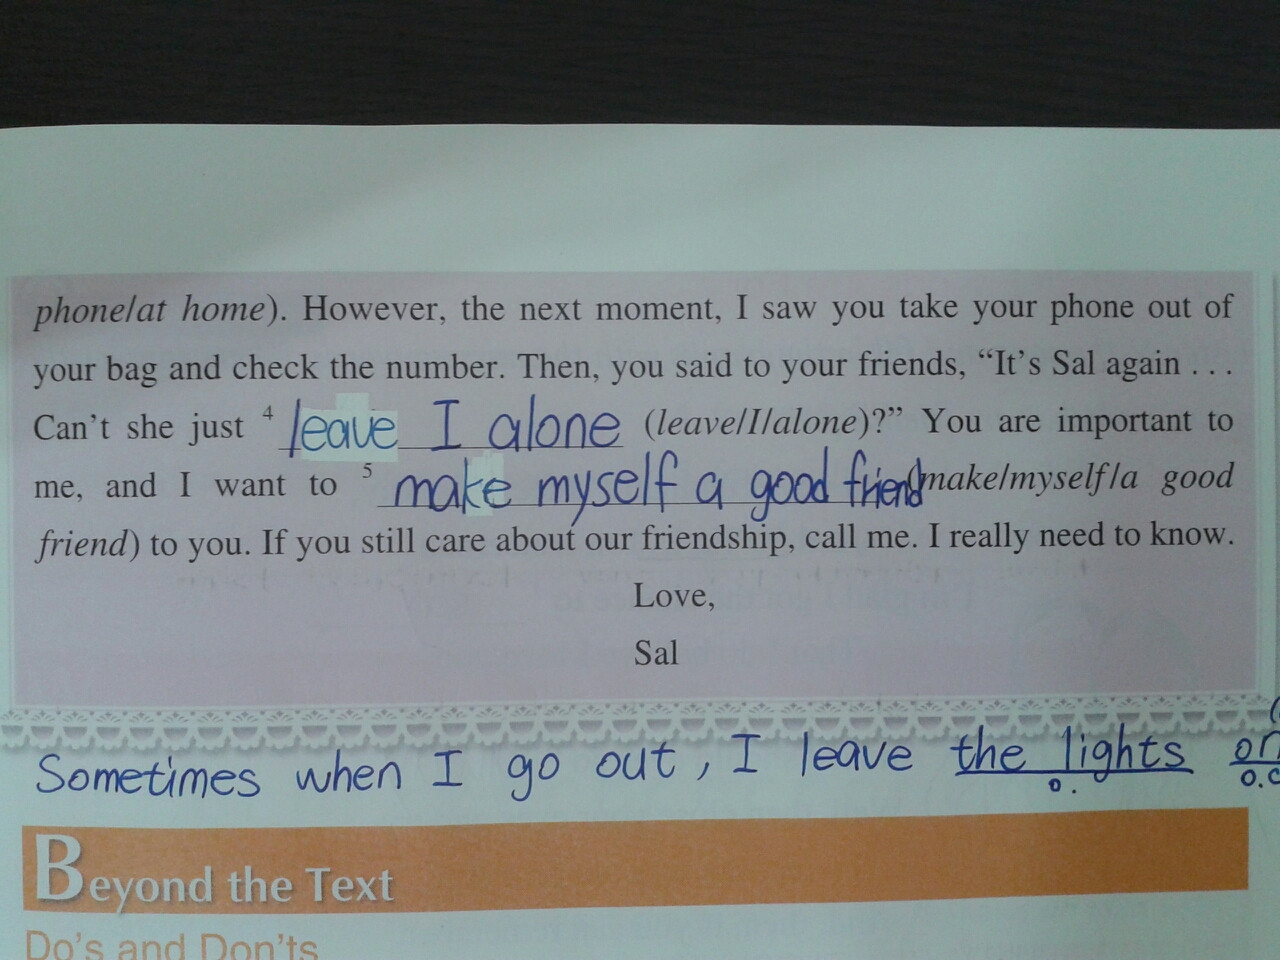 phone/at home). However, the next moment, I saw you take your phone out of
your bag and check the number. Then, you said to your friends, “It’s Sal again . . .
Can’t she just 4 leave I alone (leave/I/alone)?” You are important to
me, and I want to 5 make myself a good friend (make/myself/a good
friend) to you. If you still care about our friendship, call me. I really need to know.
Love,
Sal
Sometimes when I go out, I leave the lights on
o. o.c
Beyond the Text
Do’s and Don’ts